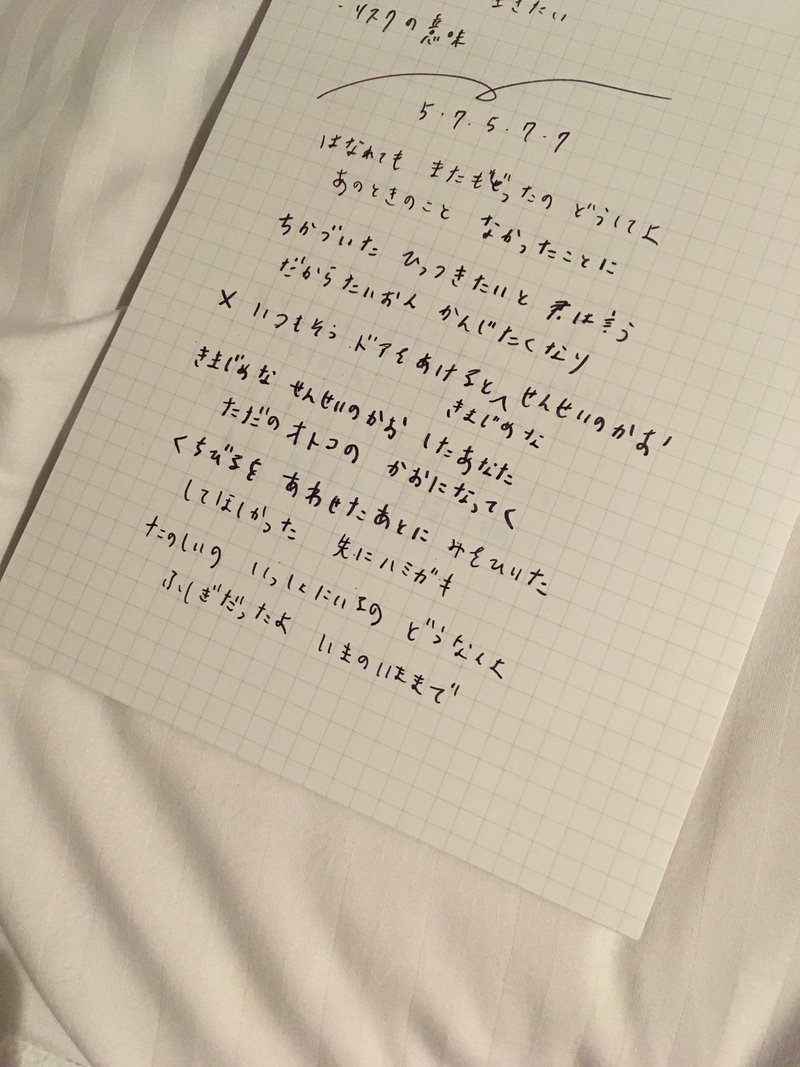 生きたい
・リスクの意味
5.7.5.7.7
はなれても またもどったの どうしてよ
あのときのこと なかったことに
ちかづいた ひっつきたいと 君は言う
だからたいおん かんじたくなり
× いつもそう ドアをあけると せんせいのかお
きまじめな
きまじめな せんせいのかお したあなた
ただのオトコの かおになってく
くちびるを あわせたあとに みをひいた
してほしかった 先にハミガキ
たのしいの いっしょにいるの どうなんよ
ふしぎだったよ いまのいままで